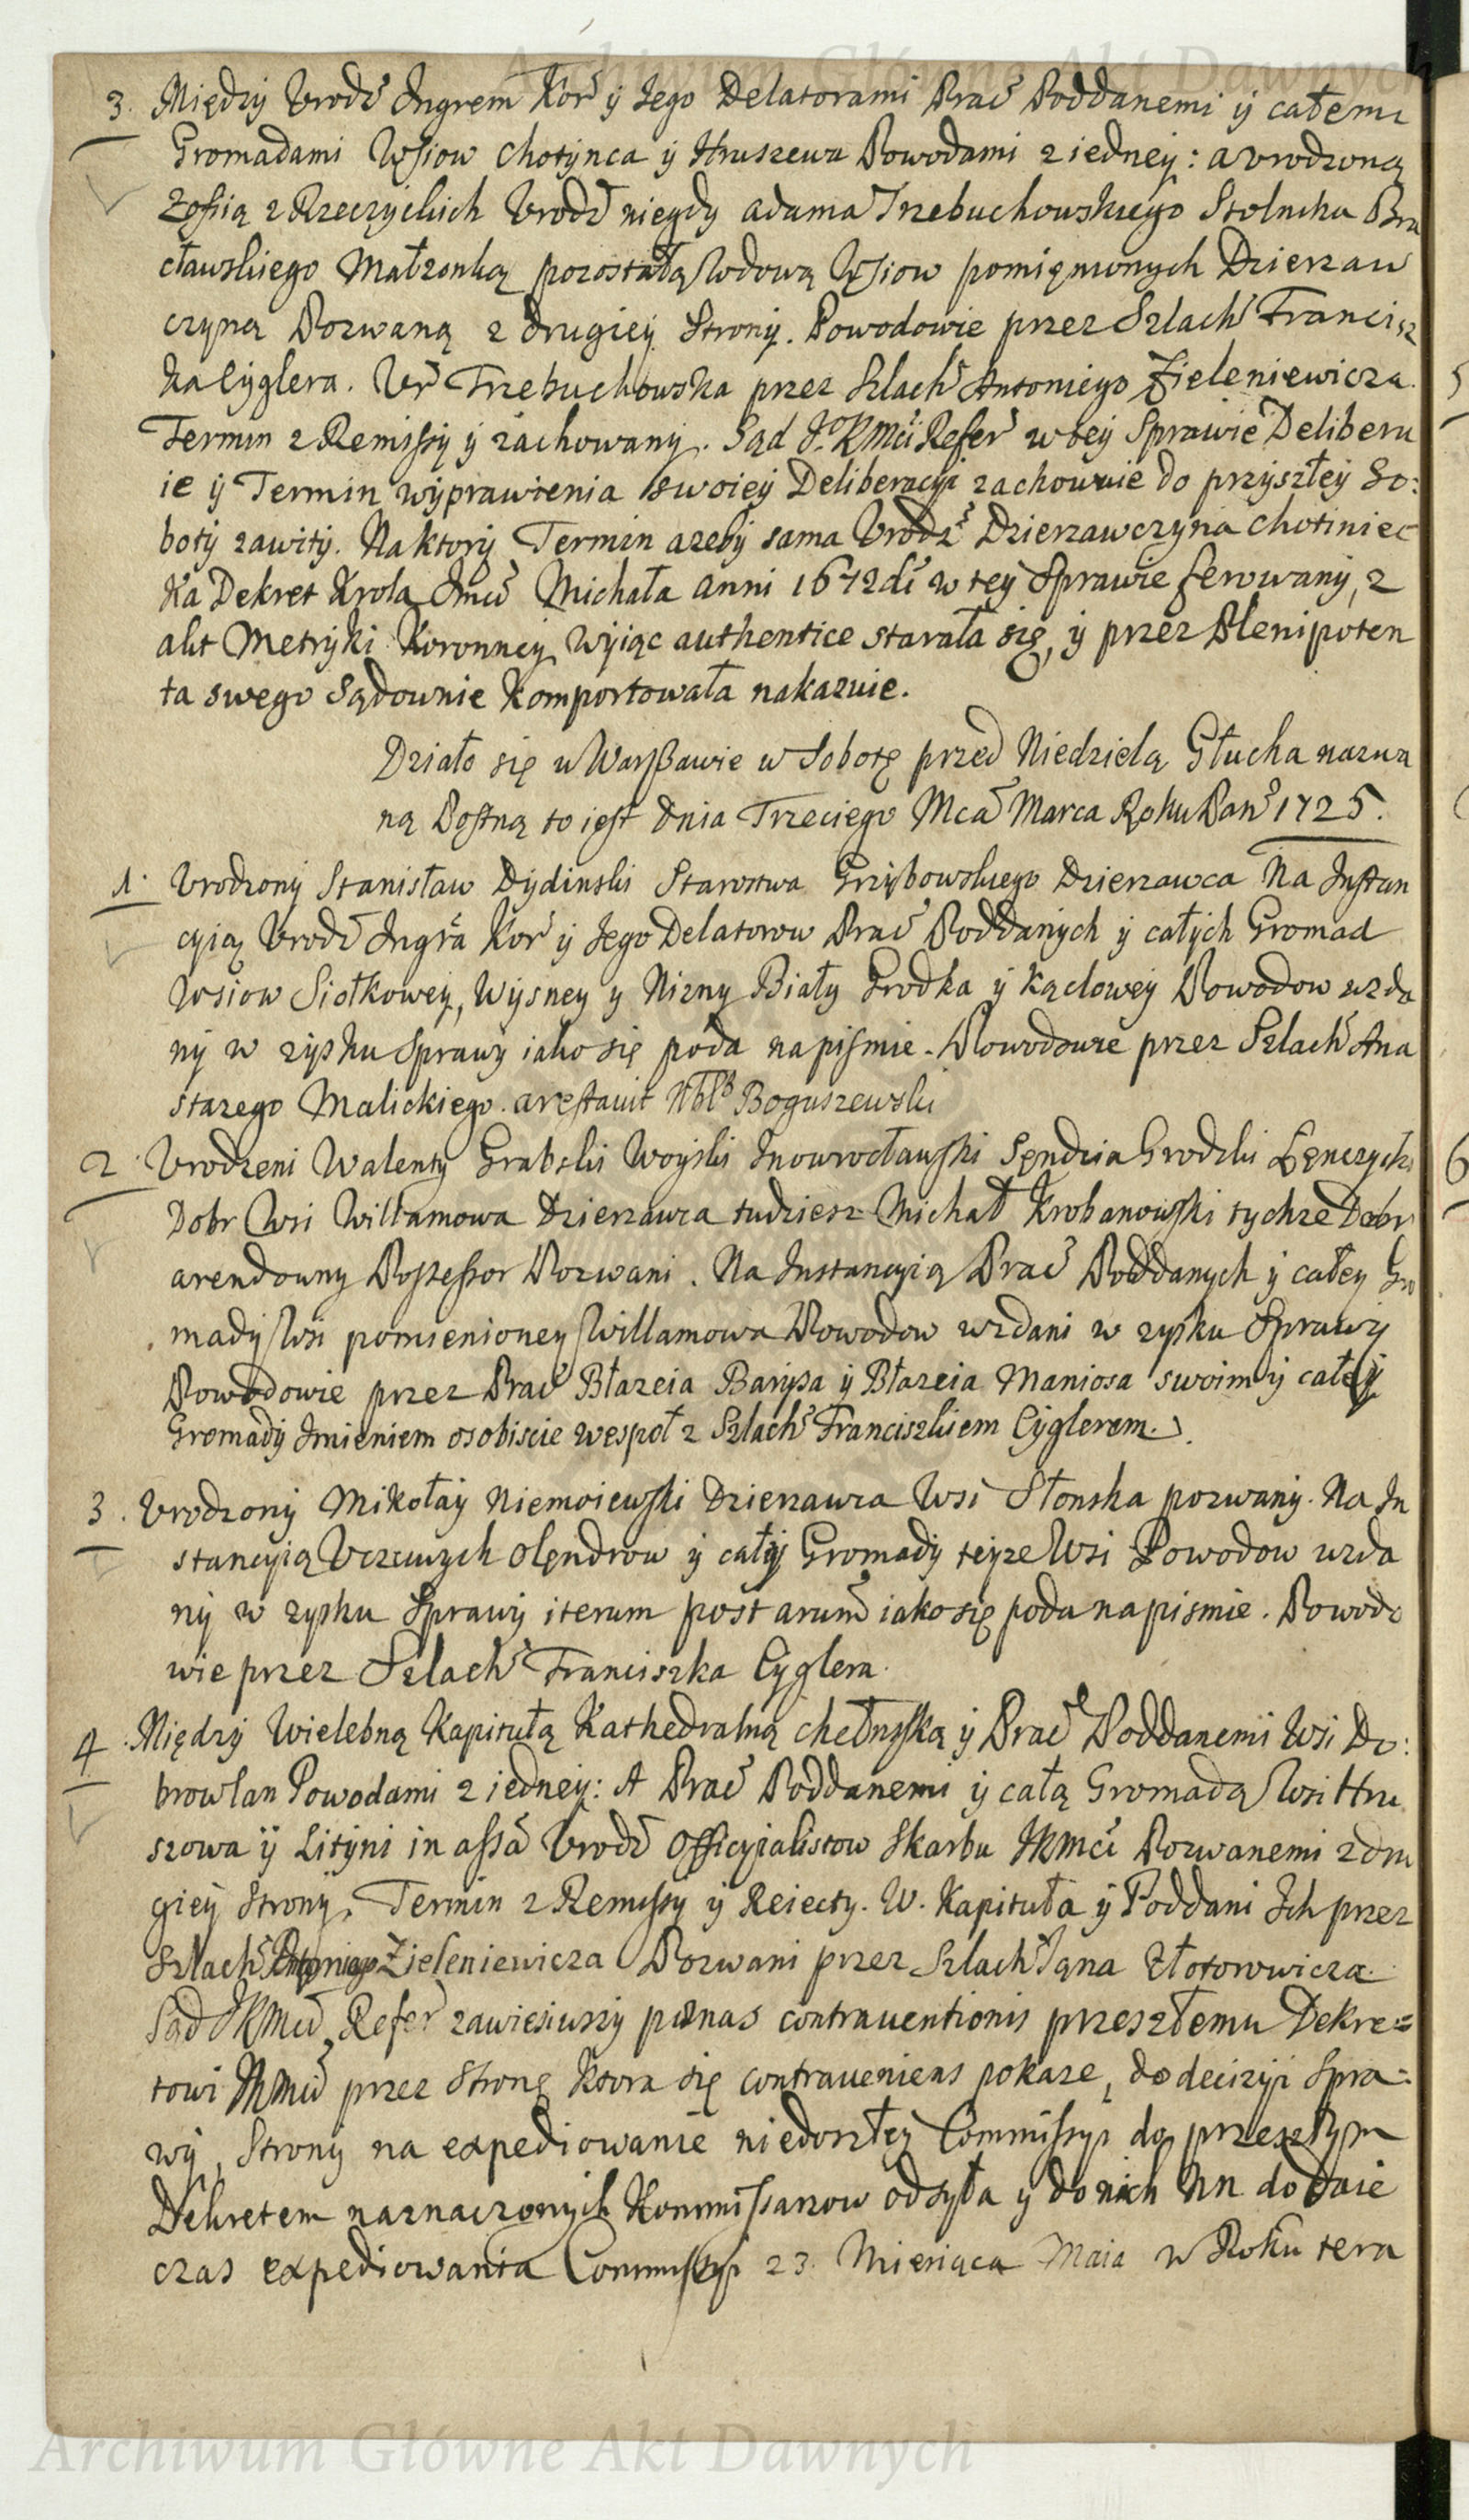 Archiwum Główne Akt Dawnych
3. Między Vrodź Ingrem Kor̃ ÿ Jego Delatorami Prać Poddanemi ÿ całemi
Gromadami Wsiow Chotÿnca ÿ Hruszewa Powodami z iedneÿ: a vrodzoną
Zofią z Rzeczyckich Vrodź niegdy Adama Trzebuchowskiego Stolnika Bra
cławskiego Małzonką pozostałą Wdową Wsiow pomięnionych Dzierzaw
czyną Pozwaną z drugieÿ Stronÿ. Powodowie przez Szlach Francisz
ka Cyglera. Vr̃ Trzebuchowska przez Szlach Antoniego Zieleniewicza.
Termin z Remissÿ ÿ zachowanÿ. Sąd J.KMci Refer̃ w teÿ Sprawie Deliberu
ie ÿ Termin wÿprawienia swoieÿ Deliberacÿi zachowuie do przyszłeÿ So:
botÿ zawitÿ. Na ktorÿ Termin azebÿ sama Vrodź Dzierzawczÿna Chotiniec
ka Dekret Krola Jmci Michała anni 1672di w teÿ Sprawie ferowanÿ, z
akt Metrÿki Koronneÿ wÿiąc authentice starała się, ÿ przez Plenipoten
ta swego Sądownie komportowała nakazuie.
Działo się w Warszawie w Sobotę przed Niedzielą Głucha nazwa
ną Postną to iest dnia Trzeciego Mca Marca Roku Pań 1725.
1. Vrodzonÿ Stanisław Dÿdinski Starostwa Grzÿbowskiego Dzierzawca Na Instan
cÿią Vrodź Ingra Kor̃ ÿ Jego Delatorow Prać Poddanÿch ÿ całÿch Gromad
Wsiow Siołkoweÿ, Wÿsneÿ ÿ Nizny Białÿ Grodka ÿ Kącloweÿ Powodow wzda
nÿ w zysku Sprawÿ iako się poda na pismie. Powodowie przez Szlach Ana
stazego Malickiego. arestavit Nbls Boguszewski
2. Vrodzeni Walentÿ Grabski Woÿski Inowrocławski Sęndzia Grodzki Łęnczycki
Dobr Wsi Willamowa Dzierzawca tudziesz Michał Krobanowski tychze Dobr
arendowny Possessor Pozwani. Na Instancyią Prać Poddanych ÿ całeÿ Gro
madÿ Wsi pomienioneÿ Willamowa Powodow wzdani w zysku Sprawÿ
Powodowie przez Prać Błazeia Barÿsa ÿ Błazeia Maniosa swoim ÿ całeÿ
Gromadÿ Imieniem osobiscie wespoł z Szlach Franciszkiem Cÿglerem.
3. Vrodzonÿ Mikołaÿ Niemoiewski Dzierzawca Wsi Słonska pozwanÿ. Na In
stancyią Vczciwych Olęndrow ÿ całÿ Gromadÿ teÿze Wsi Powodow wzda
nÿ w zysku Sprawÿ iterum post arum iako się poda na pismie. Powodo
wie przez Szlach Franciszka Cÿglera.
4. Międzÿ Wielebną Kapitułą Kathedralną Chełmską ÿ Prać Poddanemi Wsi Do:
browlan Powodami z iedneÿ: A Prać Poddanemi ÿ całą Gromadą Wsi Hru
szowa ÿ Litÿni in assa Vrodź Officyialistow Skarbu JKMci Pozwanemi z dru
gieÿ Stronÿ. Termin z Remissÿ ÿ Reiecty. W. Kapituła ÿ Poddani Ich przez
Szlach Antoniego Zieleniewicza Pozwani przez Szlach Jana Złotorowicza.
Sąd JKMci Refer̃ zawiesiwszÿ pænas contraventionis przeszłemu Dekre=
towi JKMci przez Stronę ktora się contraveniens pokaze, do decizÿi Spra=
wÿ, Stronÿ na expediowanie niedoszłeÿ Commissÿi do przeszłym
Dekretem naznaczonÿch Kommissarzow odsÿła ÿ do nich NN do daie
czas expediowania Commissÿi 23. Miesiąca Maia w Roku tera
5
6
Archiwum Główne Akt Dawnych